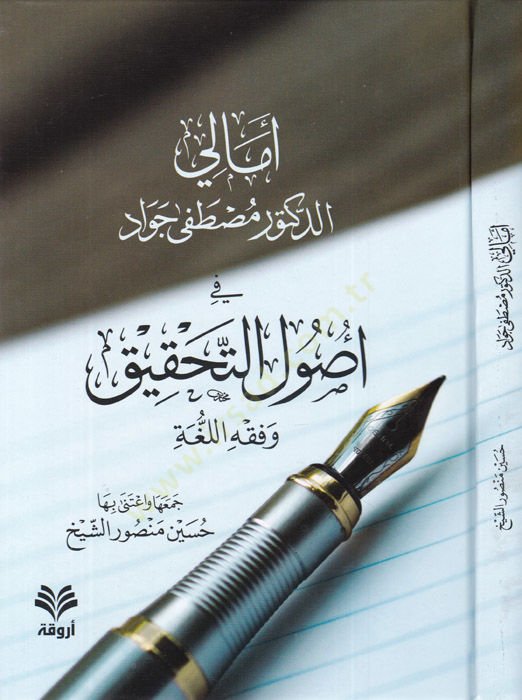 أَمَالِي
الدكتور مُصْطَفَى جَوَاد
فِي
أُصُولِ التَّحْقِيقِ
وَفِقْهِ اللُّغَةِ
جَمَعَهَا وَاعْتَنَى بِهَا
حُسَيْن مَنْصُور الشَّيْخ
أروقة
أمالي الدكتور مصطفى جواد
حسين منصور الشيخ